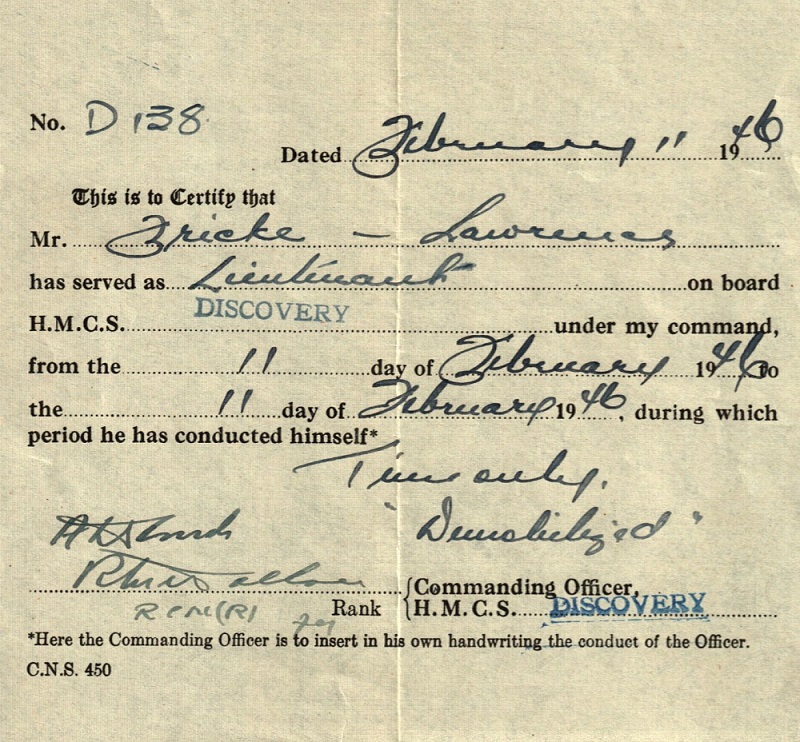 No. D 138
Dated February 11 1946
This is to Certify that
Mr. Fricke - Lawrence
has served as Lieutenant on board
H.M.C.S. DISCOVERY under my command,
from the 11 day of February 1946 to
the 11 day of February 1946, during which
period he has conducted himself*
Time only.
"Demobilized"
Commanding Officer,
Rank H.M.C.S. DISCOVERY
*Here the Commanding Officer is to insert in his own handwriting the conduct of the Officer.
C.N.S. 450